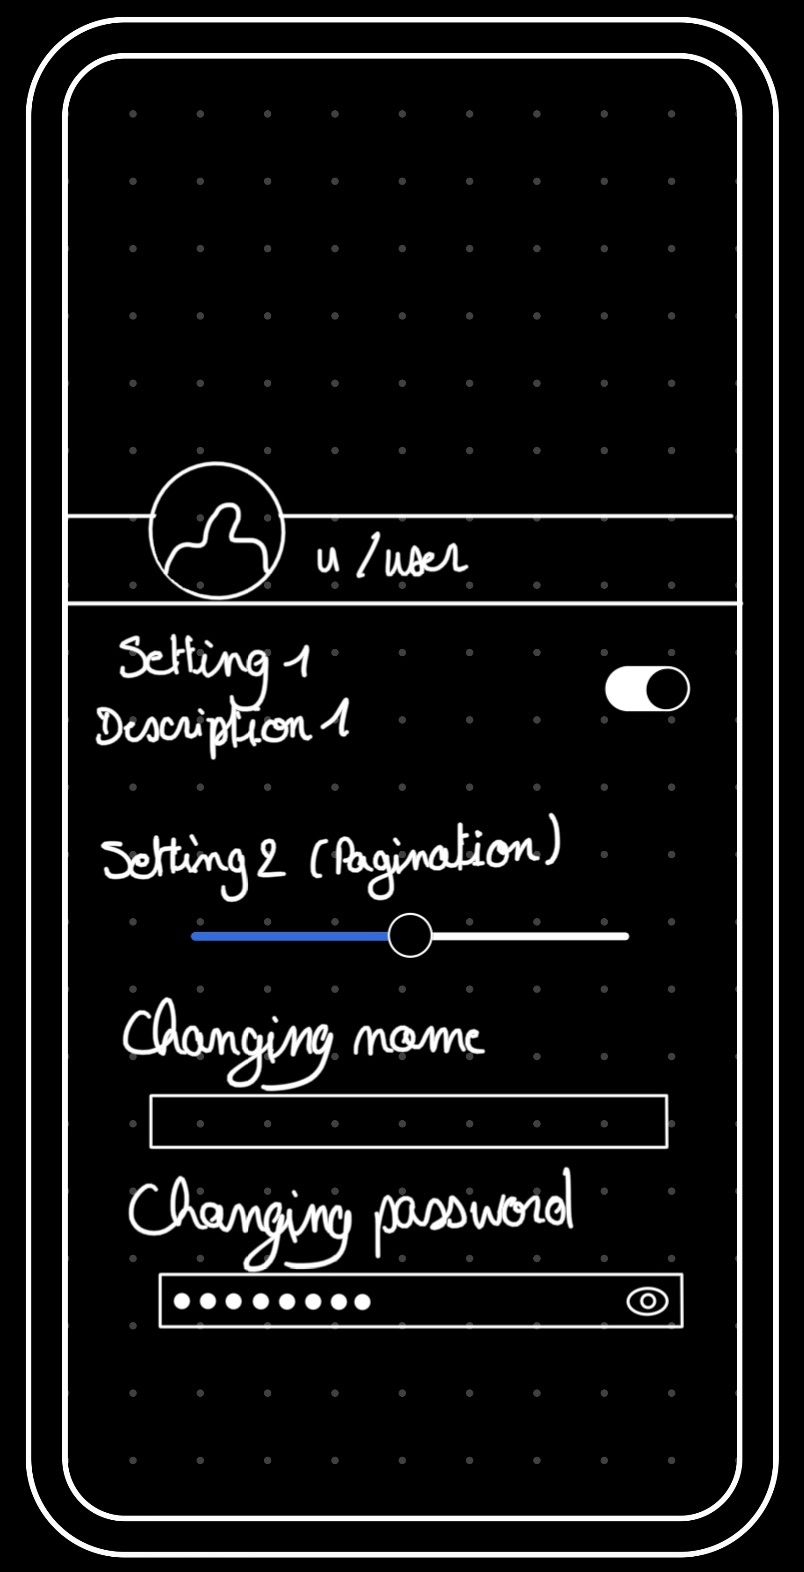 u/user
Setting 1
Description 1
Setting 2 (Pagination)
Changing name
Changing password